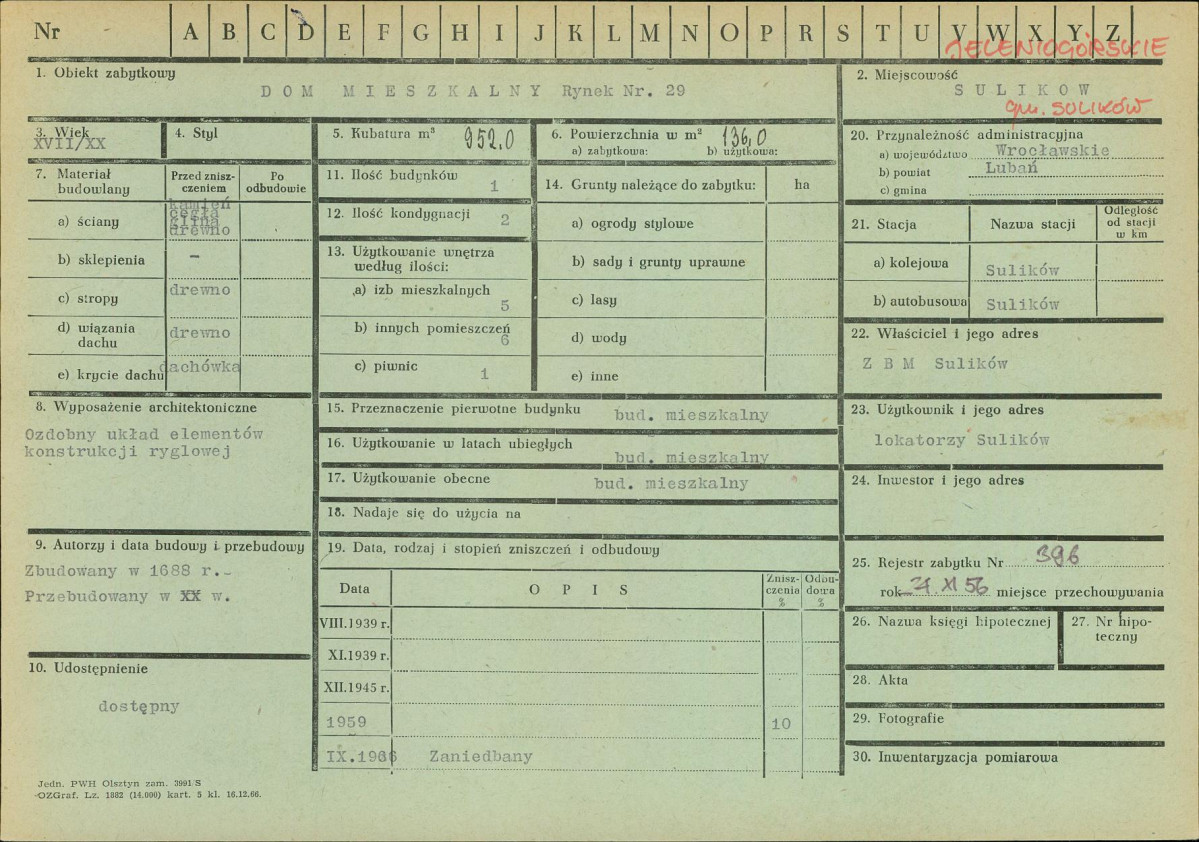 Nr A B C D E F G H I J K L M N O P R S T U V W X Y Z
JELENIOGÓRSKIE
1. Obiekt zabytkowy
DOM MIESZKALNY Rynek Nr. 29
2. Miejscowość
SULIKOW
gm. SULIKÓW
3. Wiek
XVII/XX
4. Styl
5. Kubatura m³ 952.0
6. Powierzchnia w m² 136,0
a) zabytkowa: b) użytkowa:
7. Materiał budowlany
Przed zniszczeniem
Po odbudowie
a) ściany
kamień
cegła
glina
drewno
b) sklepienia –
c) stropy drewno
d) wiązania dachu drewno
e) krycie dachu dachówka
8. Wyposażenie architektoniczne
Ozdobny układ elementów
konstrukcji ryglowej
9. Autorzy i data budowy i przebudowy
Zbudowany w 1688 r.-
Przebudowany w XX w.
10. Udostępnienie
dostępny
11. Ilość budynków 1
12. Ilość kondygnacji 2
13. Użytkowanie wnętrza
według ilości:
a) izb mieszkalnych
5
b) innych pomieszczeń
6
c) piwnic 1
14. Grunty należące do zabytku: ha
a) ogrody stylowe
b) sady i grunty uprawne
c) lasy
d) wody
e) inne
15. Przeznaczenie pierwotne budynku bud. mieszkalny
16. Użytkowanie w latach ubiegłych
bud. mieszkalny
17. Użytkowanie obecne bud. mieszkalny
18. Nadaje się do użycia na
19. Data, rodzaj i stopień zniszczeń i odbudowy
Data OPIS Zniszczenia % Odbudowa %
VIII.1939 r.
XI.1939 r.
XII.1945 r.
1959 10
IX.1966 Zaniedbany
20. Przynależność administracyjna
a) województwo Wrocławskie
b) powiat Lubań
c) gmina
21. Stacja Nazwa stacji Odległość od stacji w km
a) kolejowa Sulików
b) autobusowa Sulików
22. Właściciel i jego adres
Z B M Sulików
23. Użytkownik i jego adres
lokatorzy Sulików
24. Inwestor i jego adres
25. Rejestr zabytku Nr 396
rok XI 56 miejsce przechowywania
26. Nazwa księgi hipotecznej
27. Nr hipoteczny
28. Akta
29. Fotografie
30. Inwentaryzacja pomiarowa
Jedn. PWH Olsztyn zam. 3991/S
OZGraf. Lz. 1882 (14.000) kart. 5 kl. 16.12.66.